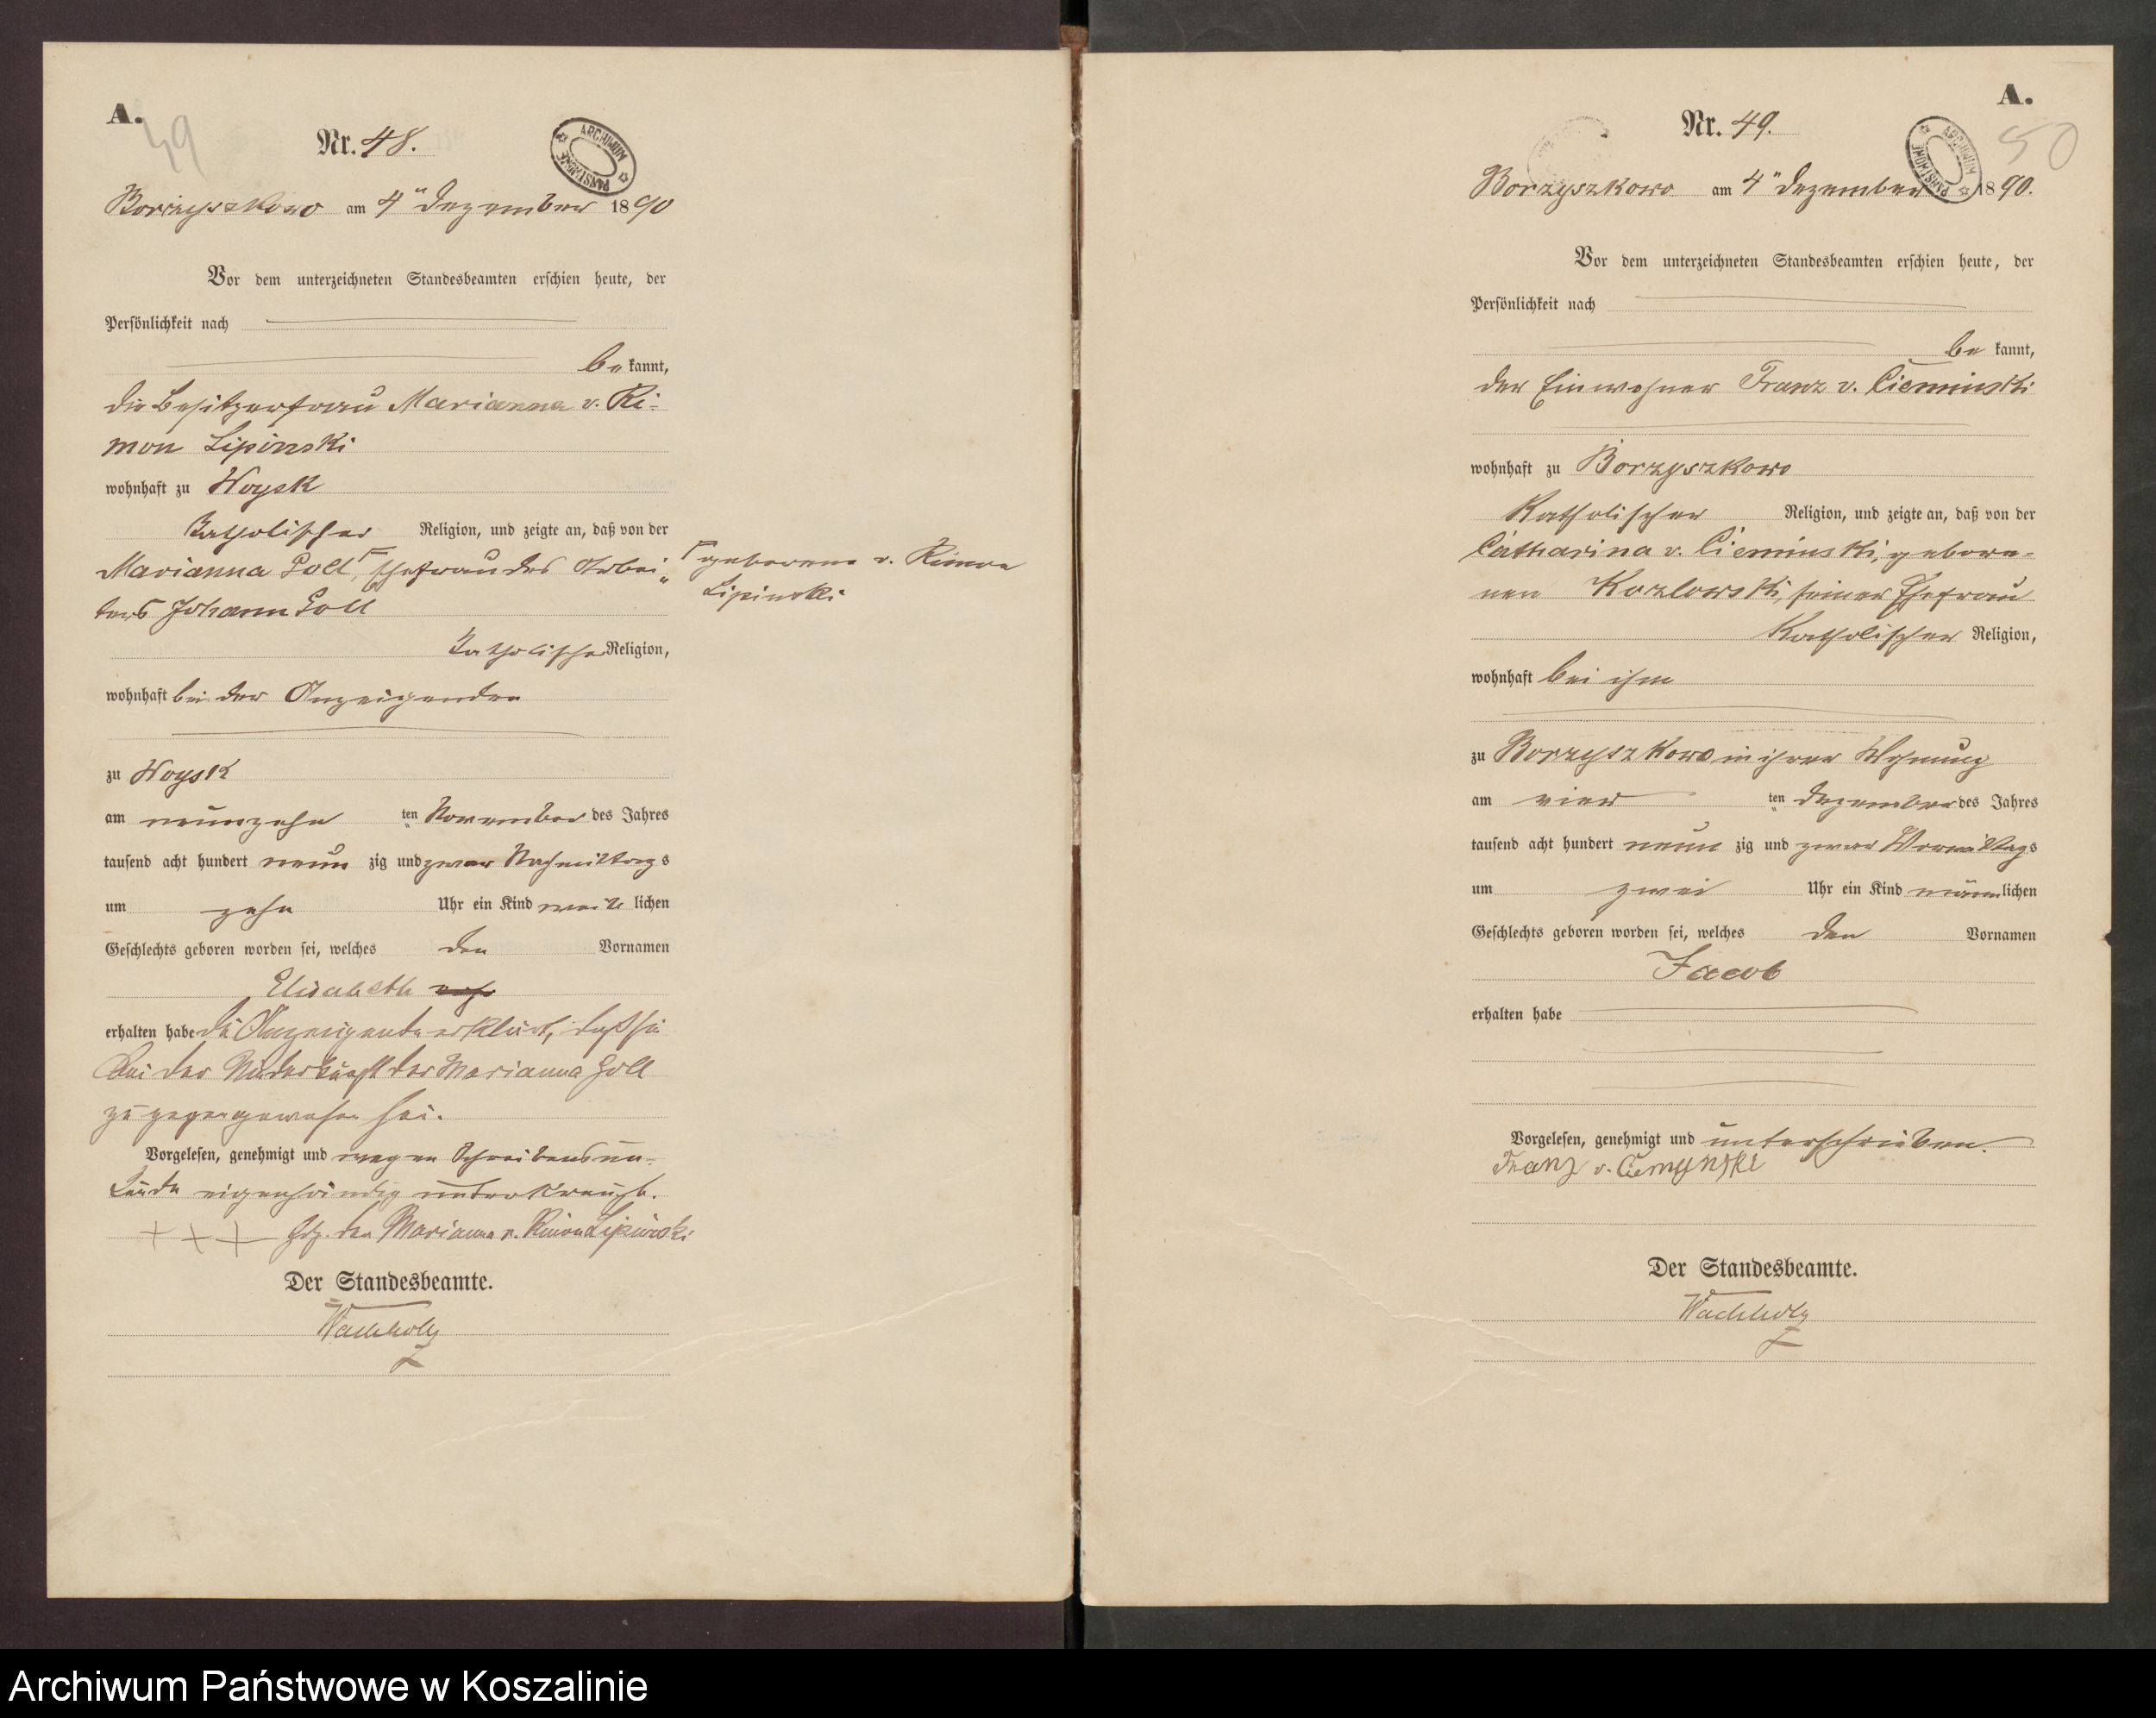 A.
49
Nr. 48.
ARCHIWUM PAŃSTWOWE
Borzyszkowo am 4" Dezember 1890
Vor dem unterzeichneten Standesbeamten erschien heute, der
Persönlichkeit nach
be kannt,
die Besitzerfrau Marianna v. Ki-
mon Lipinski
wohnhaft zu Woysk
katholischer Religion, und zeigte an, daß von der
Marianna Goll, Ehefrau des Arbei-
ters Johann Goll
geborene v. Kimon
Lipinski
katholischer Religion,
wohnhaft bei der Anzeigenden
zu Woysk
am neunzehn ten November des Jahres
tausend acht hundert neun zig und zwar Nachmittags
um zehn Uhr ein Kind weib lichen
Geschlechts geboren worden sei, welches den Vornamen
Elisabeth
erhalten habe Die Anzeigende erklärt, daß sie
bei der Niederkunft der Marianna Goll
zugegen gewesen sei.
Vorgelesen, genehmigt und wegen Schreibensun-
kunde eigenhändig unterkreuzt.
+ + + Hdz. der Marianna v. Kimon Lipinski
Der Standesbeamte.
Wachholz
A.
50
Nr. 49.
ARCHIWUM PAŃSTWOWE
Borzyszkowo am 4" Dezember 1890.
Vor dem unterzeichneten Standesbeamten erschien heute, der
Persönlichkeit nach
be kannt,
der Einwohner Franz v. Cieminski
wohnhaft zu Borzyszkowo
katholischer Religion, und zeigte an, daß von der
Catharina v. Cieminski, gebore-
nen Kozlowski, seiner Ehefrau
katholischer Religion,
wohnhaft bei ihm
zu Borzyszkowo in ihrer Wohnung
am vier ten Dezember des Jahres
tausend acht hundert neun zig und zwar Vormittags
um zwei Uhr ein Kind männ lichen
Geschlechts geboren worden sei, welches den Vornamen
Jacob
erhalten habe
Vorgelesen, genehmigt und unterschrieben.
Franz v. Ciemynski
Der Standesbeamte.
Wachholz
Archiwum Państwowe w Koszalinie